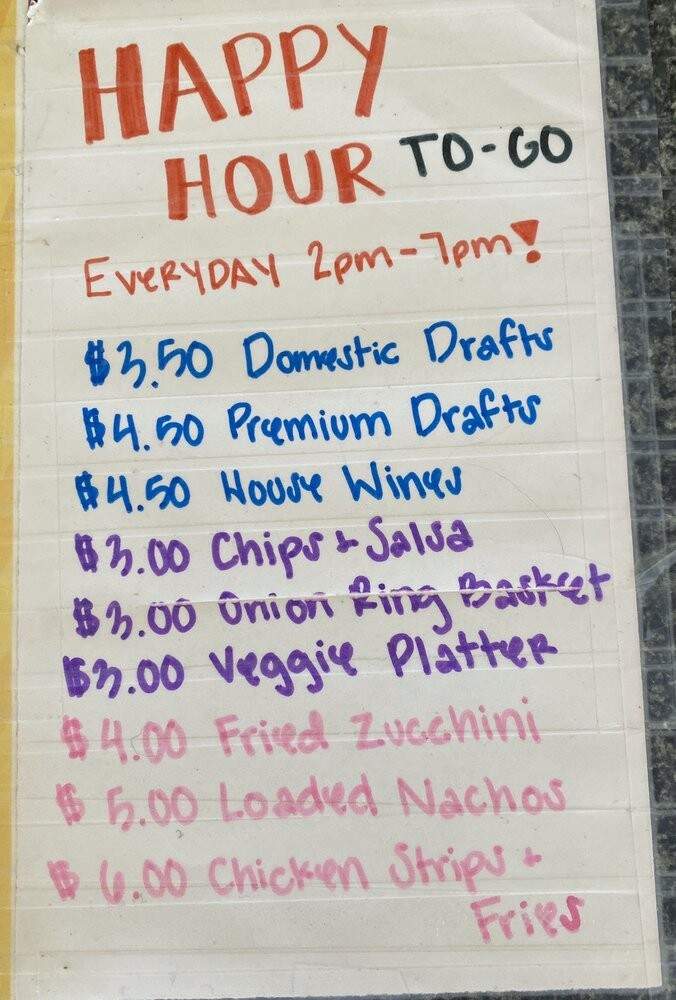 HAPPY
HOUR TO-GO
EVERYDAY 2pm-7pm!
$3.50 Domestic Drafts
$4.50 Premium Drafts
$4.50 House Wines
$3.00 Chips + Salsa
$3.00 Onion Ring Basket
$3.00 Veggie Platter
$4.00 Fried Zucchini
$5.00 Loaded Nachos
$6.00 Chicken Strips +
Fries